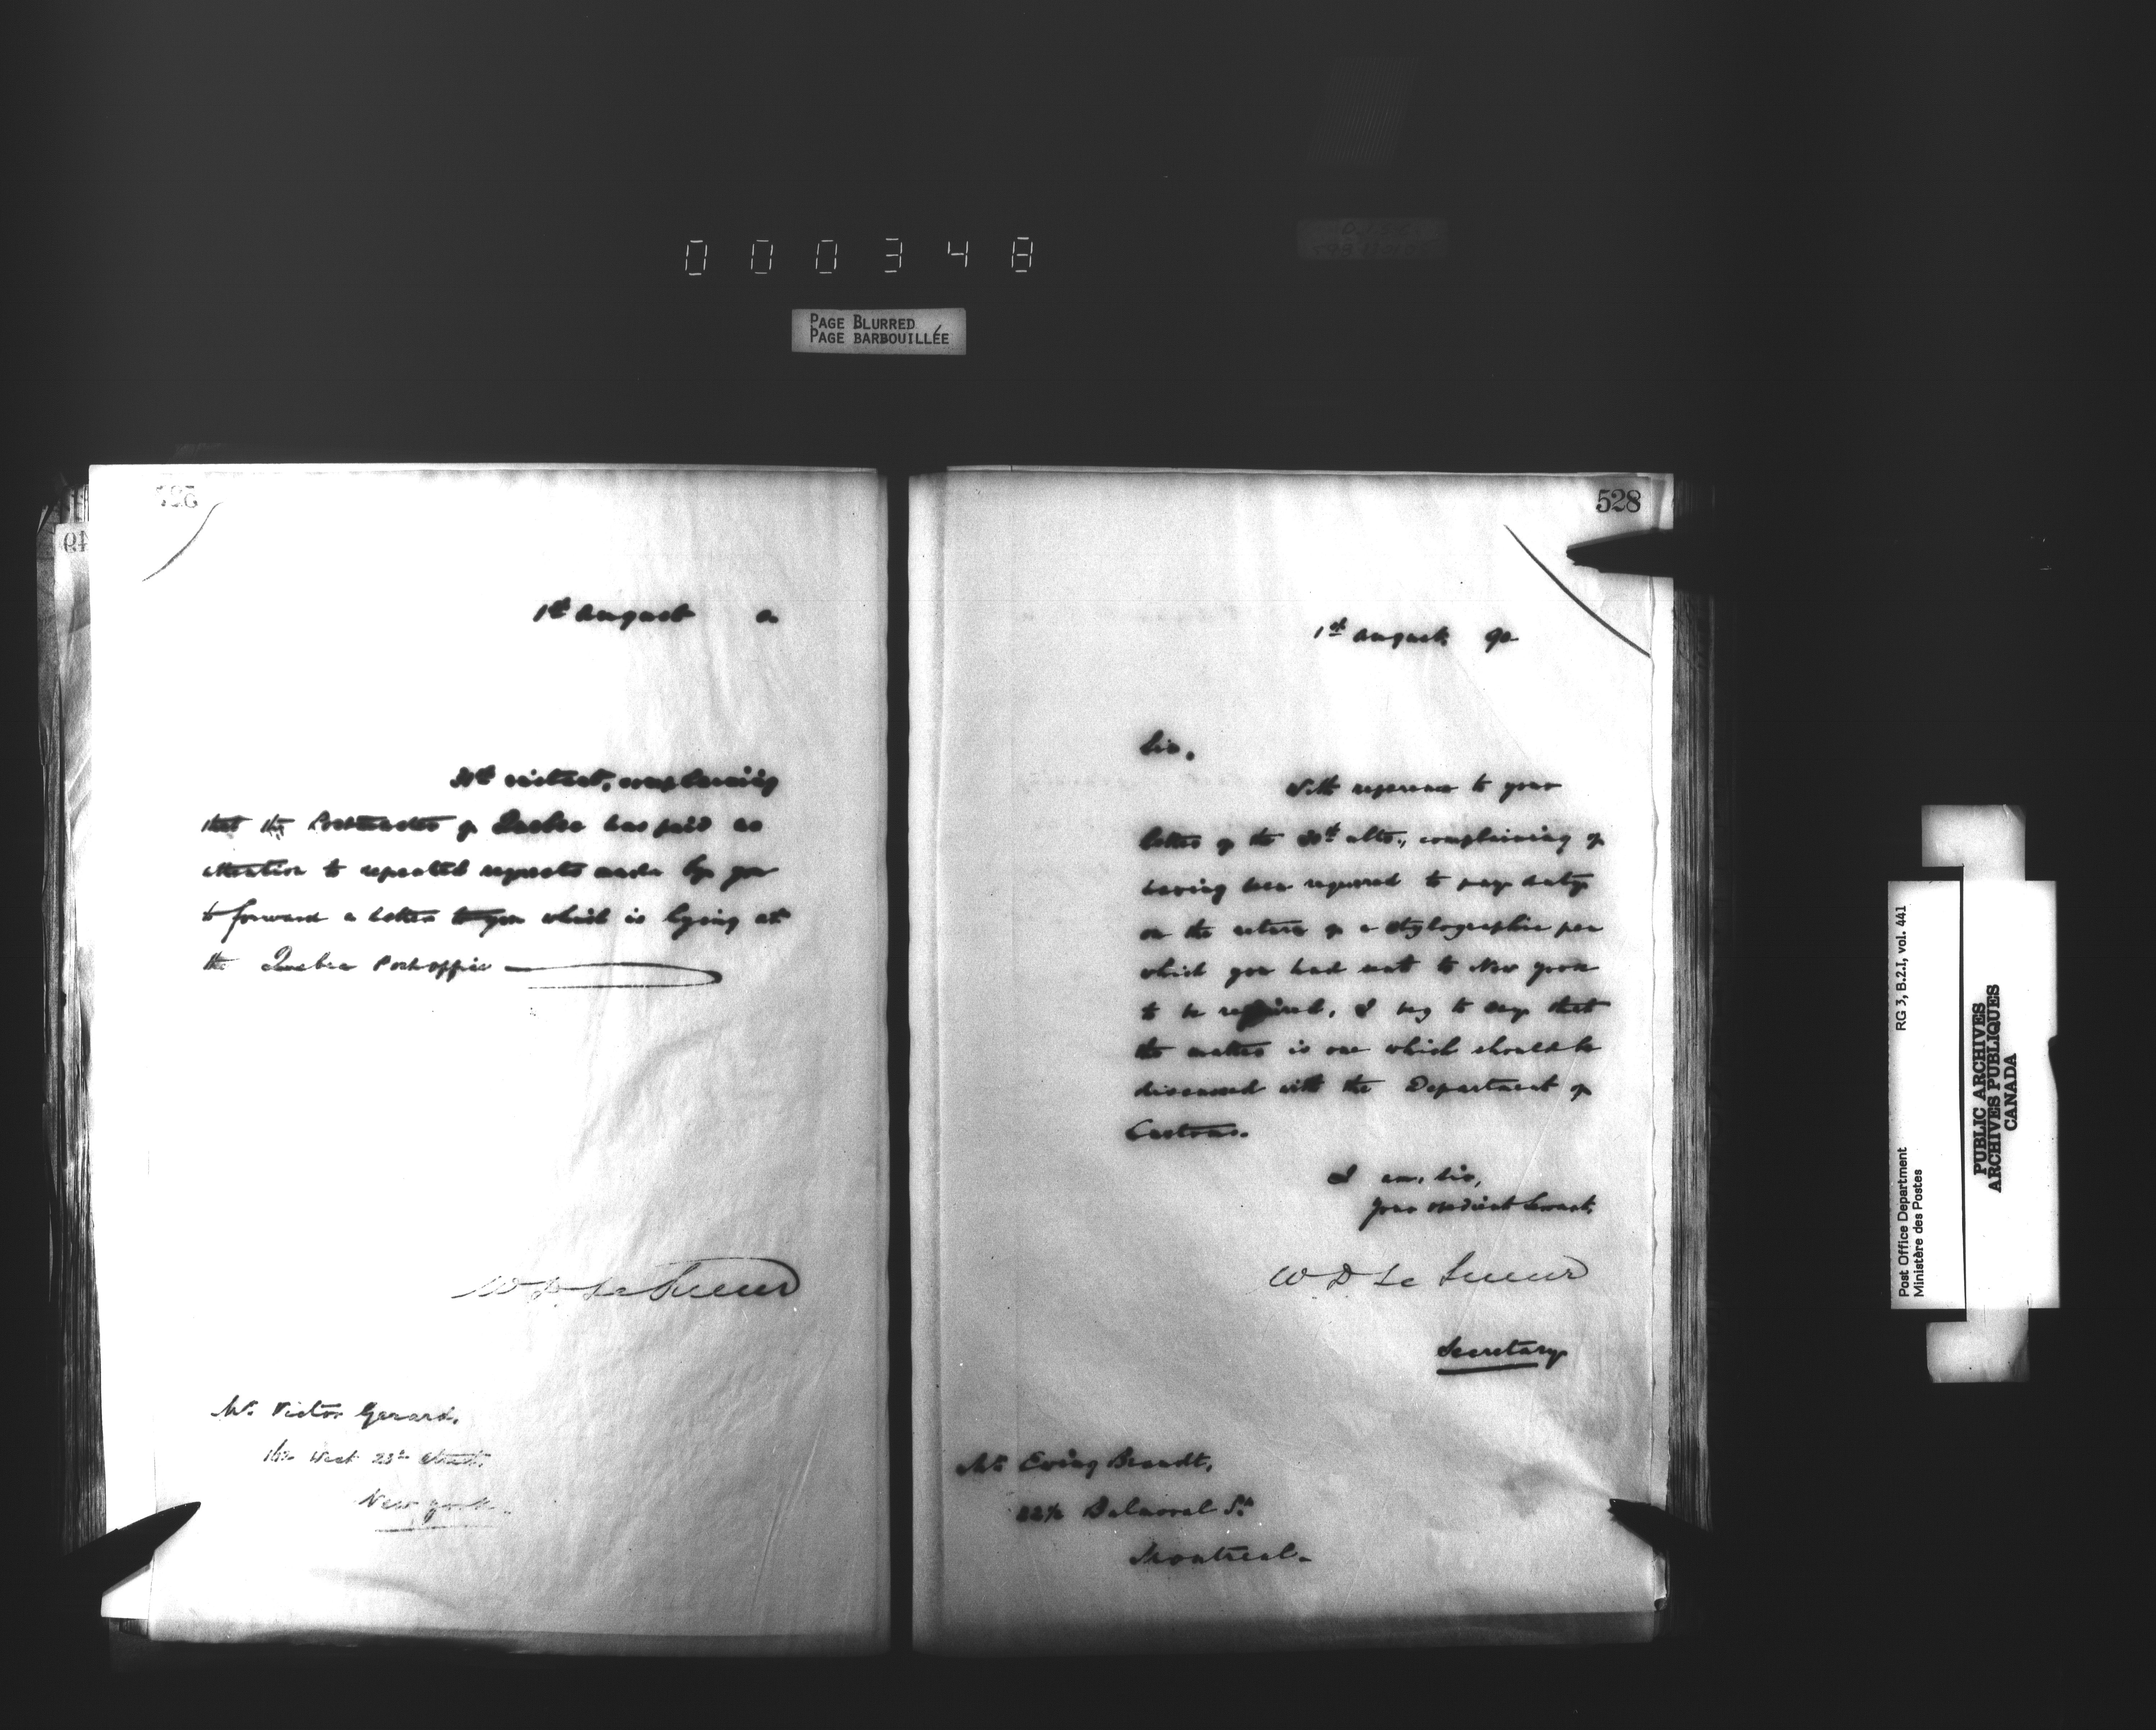 000348
PAGE BLURRED
PAGE BARBOUILLÉE
1st August
instant, complaining
that the Postmaster of Quebec has paid no
attention to repeated requests made by you
to forward a letter to you which is lying at
the Quebec Post office
W D Le Sueur
Mr. Victor Gerard,
West 23rd Street,
New York.
528
1st August, 90
Sir,
With reference to your
letter of the ulto., complaining of
having been required to pay duty
on the return of a stylographic pen
which you had sent to New York
to be repaired, I beg to say that
the matter is one which should be
discussed with the Department of
Customs.
I am, Sir,
Your obedient Servant,
W D Le Sueur
Secretary
Mr. Ewing Brandt,
Balmoral St.
Montreal.
Post Office Department
Ministère des Postes
RG 3, B.2.I, vol. 441
PUBLIC ARCHIVES
ARCHIVES PUBLIQUES
CANADA